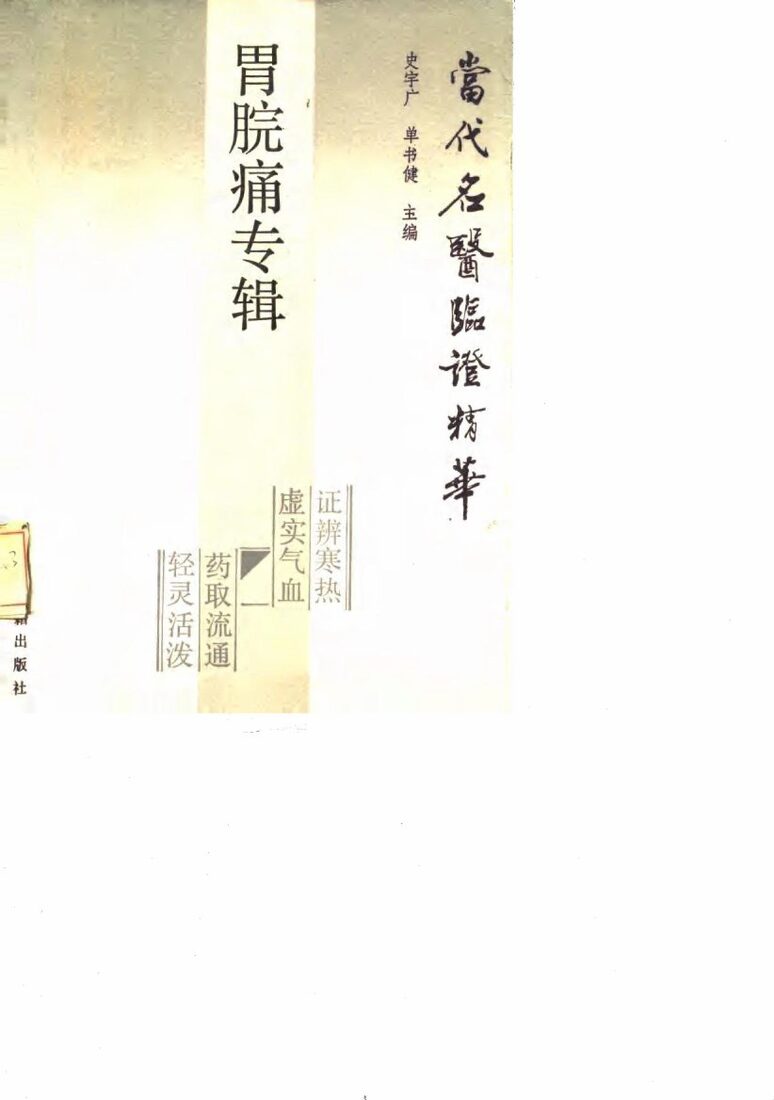 當代名醫臨證精華
史宇广 单书健 主编
胃脘痛专辑
证辨寒热
虚实气血
药取流通
轻灵活泼
籍出版社